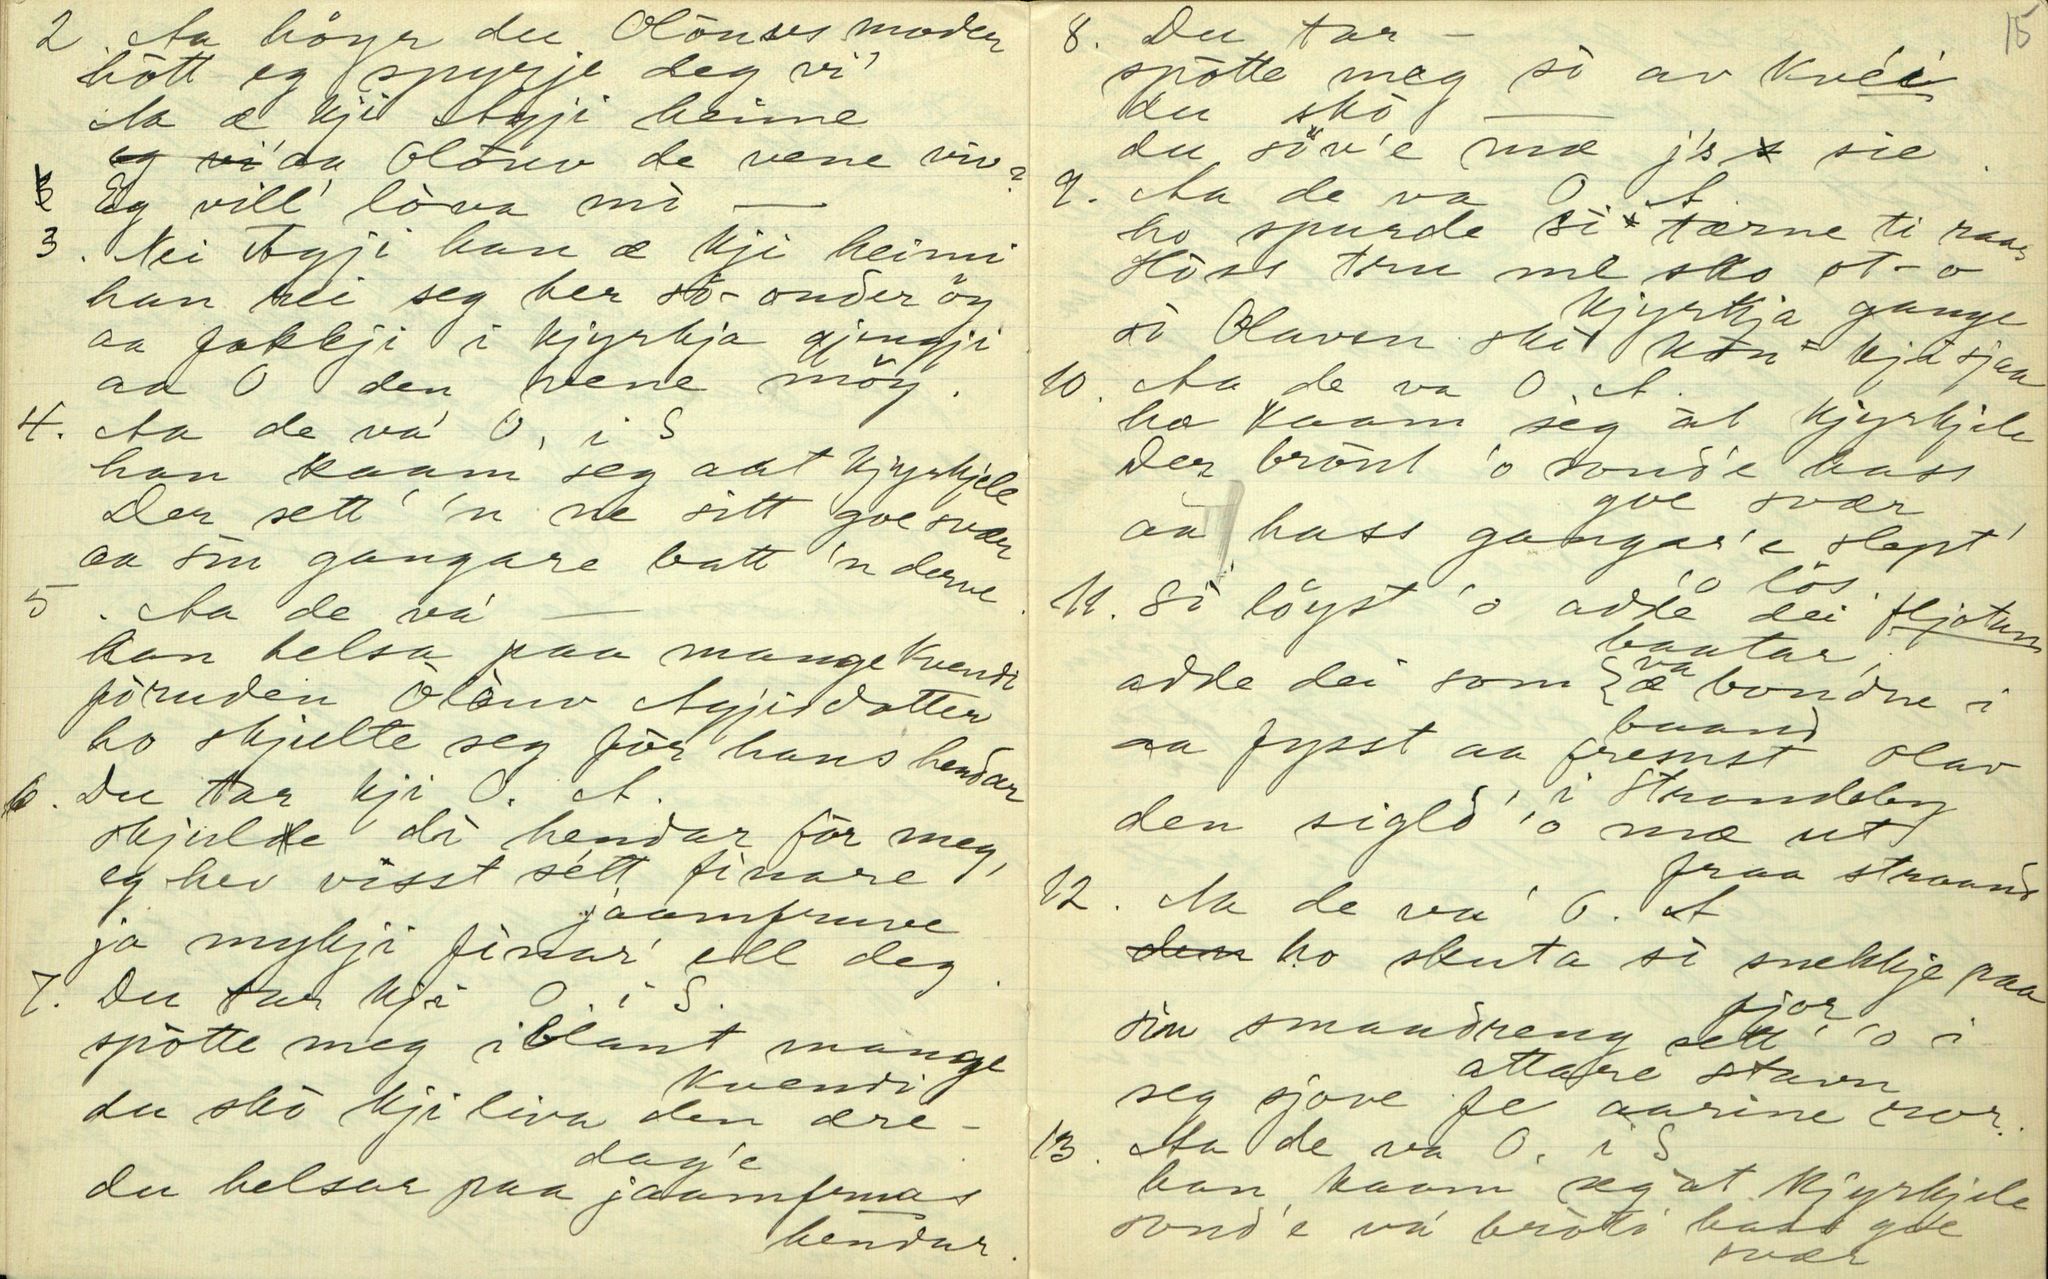 2. Aa høyr du Olõuses moder
hòtt eg spyrje deg vi'
Aa æ kji Ayji heime
eg vi' aa Olòuv de vene viv?
Eg vill' lòva mi —
3. Nei Ayji han æ kji heimi
han rei seg her sò-onder øy
aa fokkji i kjyrkja gjengji
aa O den vene møy.
4. Aa de va' O. i S
han kaam' seg aat kjyrkjele
Der sett' 'n ne sitt goe svær
aa sin gangare batt 'n derve.
5. Aa de va' —
han helsa paa mange kvendi
föruden Olòuv Ayjisdotter
ho skjulte seg för hans hendar
6. Du tar kji O. A.
skjulde di hendar för meg,
eg hev visst sétt finare
jaamfruve
ja mykji finar' ell deg.
7. Du tar kji O. i S.
spòtte meg iblant mange
kvendi
du skò kji liva den ære-
dag'e
du helsar paa jaamfruas
hendar.
15
8. Du tar —
spòtte meg sò av kvéi
du skò —
du söv'e mæ j's sie.
9. Aa de va O. A.
ho spurde si tærne ti raas
Hòss tru me sko ot-o
kjyrkja gange
sò Olaven skò kòn kji sjaa
10. Aa de va O A.
ho kaam seg at kjyrkjele
Der brònt 'o sond'e hass
goe svær
aa hass gangar'e slept'
'o lös.
11. Si löyst 'o adde dei fljotun
baatar,
adde dei som æ va bondne i
baand
aa fysst aa fremst Olav
i Strandeby
den siglò 'o mæ ut
fraa straand
12. Aa de va' O. A
den ho skuta si snekkje paa
fjor
sin smaadreng sett' 'o i
attare stavn
seg sjove fe aarine ror.
13. Aa de va O. i S
han kaam seg at kjyrkjele
sond'e va' bròti hass goe
svær